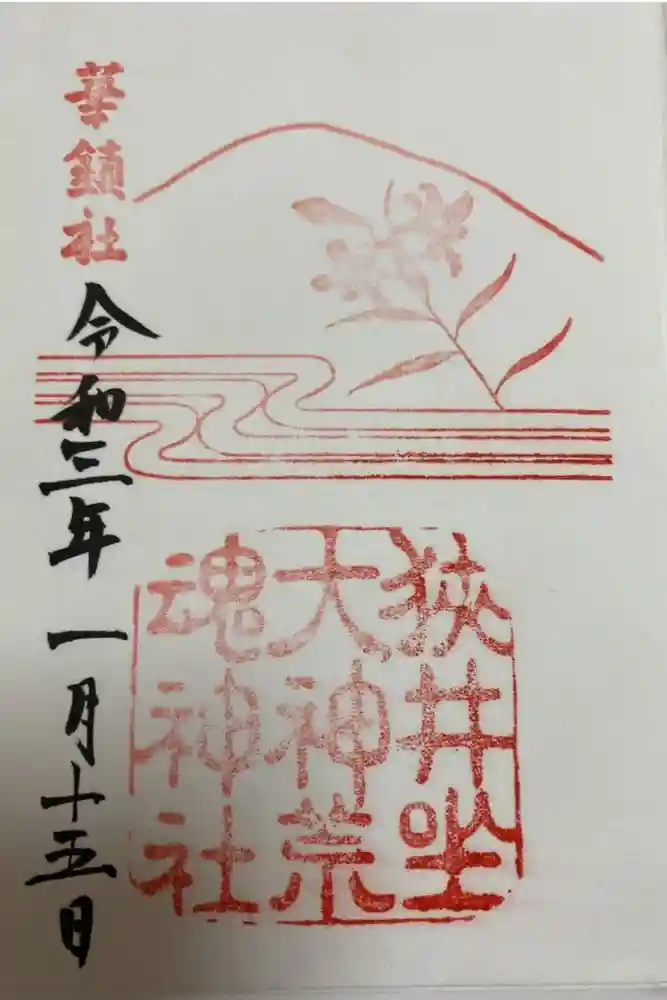 狭井坐
大神荒
魂神社
華鎮社
令和三年一月十五日